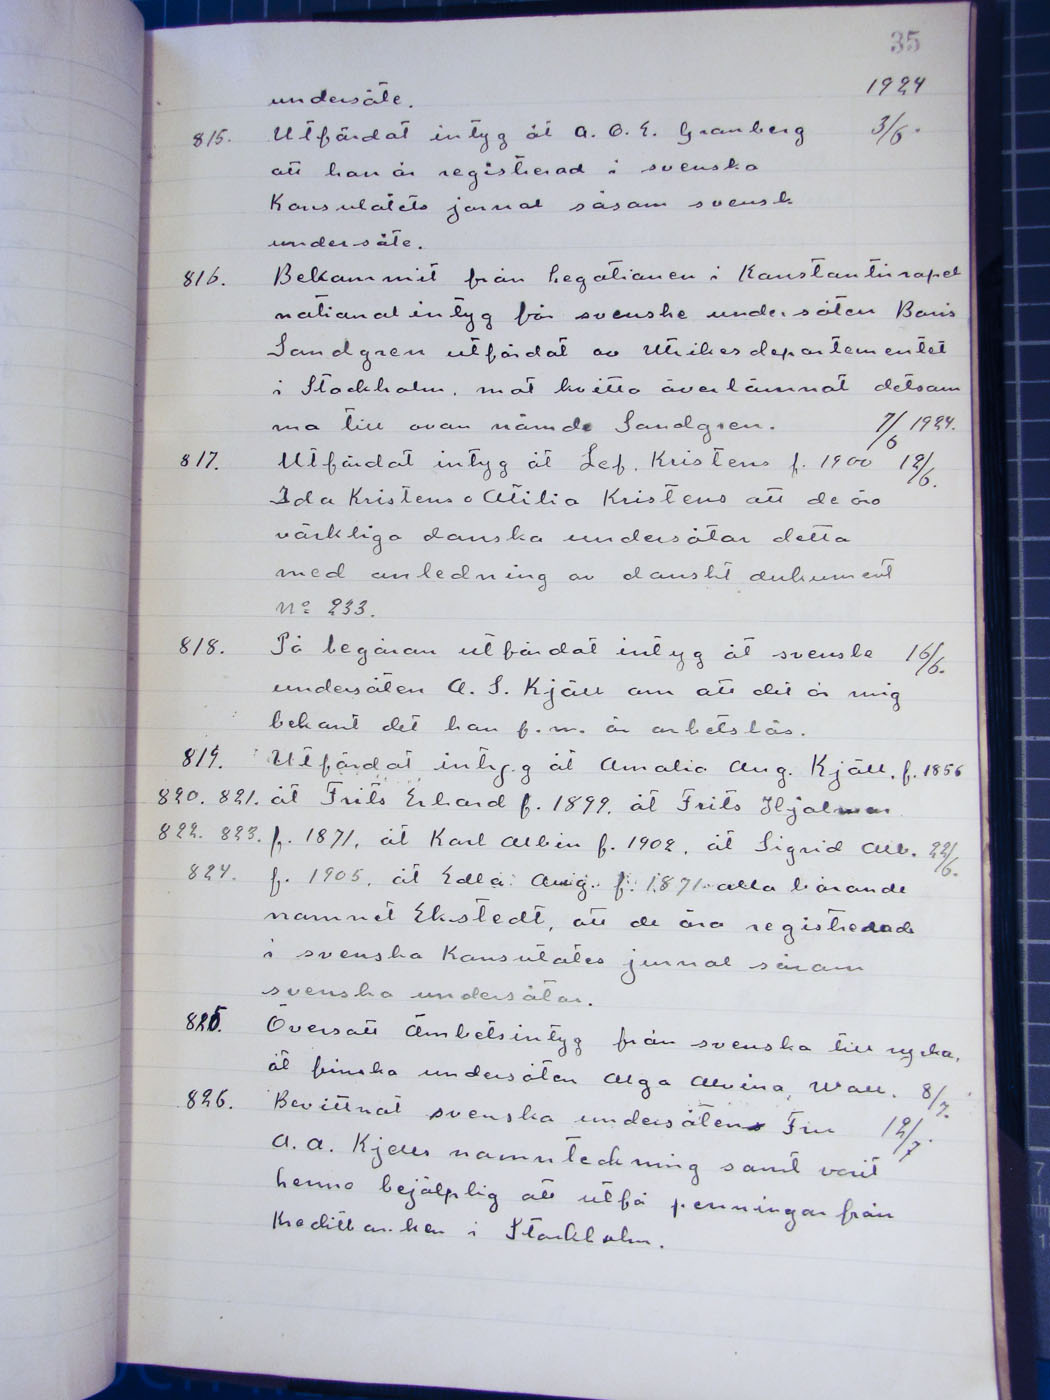 35
1924
undersåte.
815. Utfärdat intyg åt A. O. E. Granberg 3/6.
att han är registrerad i svenska
Konsulatets jornal såsom svensk
undersåte.
816. Bekommit från Legationen i Konstantinopel
nationalintyg för svenske undersåten Boris
Sandgren utfärdat av Utrikesdepartementet
i Stockholm, mot kvitto överlämnat detsam
ma till ovan nämde Sandgren. 7/6 1924.
817. Utfärdat intyg åt Lef. Kristens f. 1900 12/6.
Ida Kristens o Otilia Kristens att de äro
värkliga danska undersåtar detta
med anledning av danskt dukument
No 233.
818. På begäran utfärdat intyg åt svenske 16/6.
undersåten A. S. Kjäll om att det är mig
bekant det han f. n. är arbetslös.
819. Utfärdat intyg åt Amalia Aug. Kjäll, f. 1856
820. 821. åt Frits Erhard f. 1899. åt Frits Hjalmar
822. 823. f. 1871, åt Karl Albin f. 1902, åt Sigrid Alb. 22/6.
824. f. 1905, åt Edla Aug. f. 1871 alla bärande
namnet Ekstedt, att de äro registrerade
i svenska Konsulates jurnal såsom
svenska undersåtar.
825. Översatt Ämbetsintyg från svenska till ryska,
åt finska undersåten Olga Alvina, Wall. 8/7.
826. Bevittnat svenska undersåtens Fru 12/7.
A. A. Kjälls namnteckning samt varit
henne bejälplig att utfå penningar från
Kreditbanken i Stockholm.